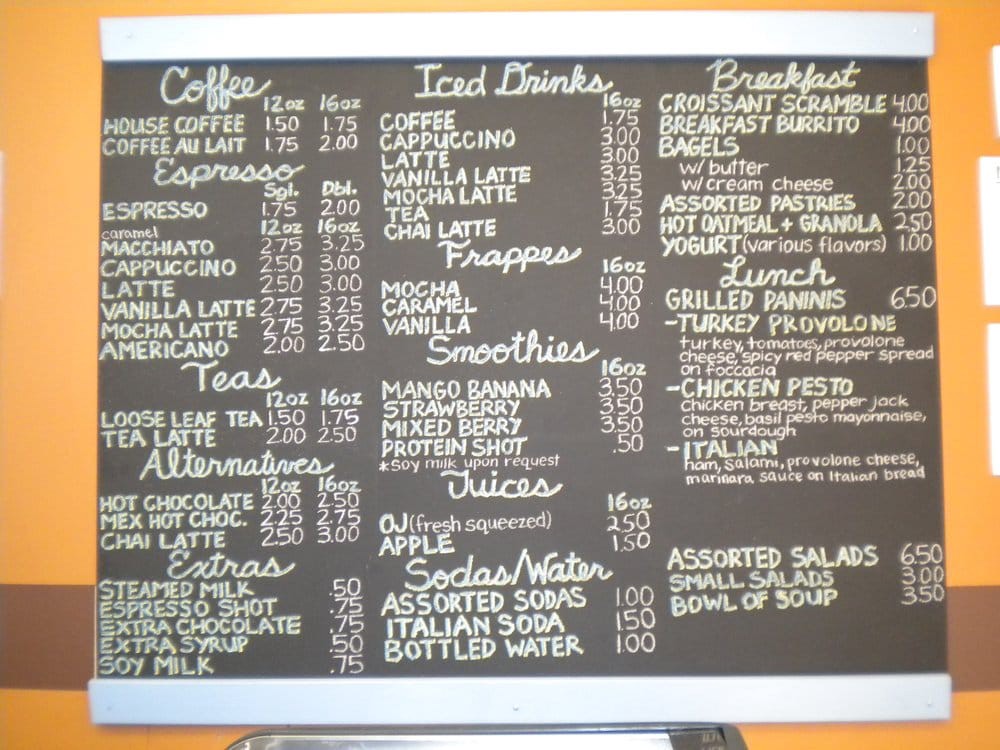 Coffee
12oz 16oz
HOUSE COFFEE 1.50 1.75
COFFEE AU LAIT 1.75 2.00
Espresso
Sgl. Dbl.
ESPRESSO 1.75 2.00
12oz 16oz
caramel
MACCHIATO 2.75 3.25
CAPPUCCINO 2.50 3.00
LATTE 2.50 3.00
VANILLA LATTE 2.75 3.25
MOCHA LATTE 2.75 3.25
AMERICANO 2.00 2.50
Teas
12oz 16oz
LOOSE LEAF TEA 1.50 1.75
TEA LATTE 2.00 2.50
Alternatives
12oz 16oz
HOT CHOCOLATE 2.00 2.50
MEX HOT CHOC. 2.25 2.75
CHAI LATTE 2.50 3.00
Extras
STEAMED MILK .50
ESPRESSO SHOT .75
EXTRA CHOCOLATE .75
EXTRA SYRUP .50
SOY MILK .75
Iced Drinks
16oz
COFFEE 1.75
CAPPUCCINO 3.00
LATTE 3.00
VANILLA LATTE 3.25
MOCHA LATTE 3.25
TEA 1.75
CHAI LATTE 3.00
Frappes
16oz
MOCHA 4.00
CARAMEL 4.00
VANILLA 4.00
Smoothies
16oz
MANGO BANANA 3.50
STRAWBERRY 3.50
MIXED BERRY 3.50
PROTEIN SHOT .50
*soy milk upon request
Juices
16oz
OJ (fresh squeezed) 2.50
APPLE 1.50
Sodas/Water
ASSORTED SODAS 1.00
ITALIAN SODA 1.50
BOTTLED WATER 1.00
Breakfast
CROISSANT SCRAMBLE 4.00
BREAKFAST BURRITO 4.00
BAGELS 1.00
w/ butter 1.25
w/ cream cheese 2.00
ASSORTED PASTRIES 2.00
HOT OATMEAL + GRANOLA 2.50
YOGURT (various flavors) 1.00
Lunch
GRILLED PANINIS 6.50
-TURKEY PROVOLONE
turkey, tomatoes, provolone
cheese, spicy red pepper spread
on foccacia
-CHICKEN PESTO
chicken breast, pepper jack
cheese, basil pesto mayonnaise,
on sourdough
-ITALIAN
ham, salami, provolone cheese,
marinara sauce on Italian bread
ASSORTED SALADS 6.50
SMALL SALADS 3.00
BOWL OF SOUP 3.50